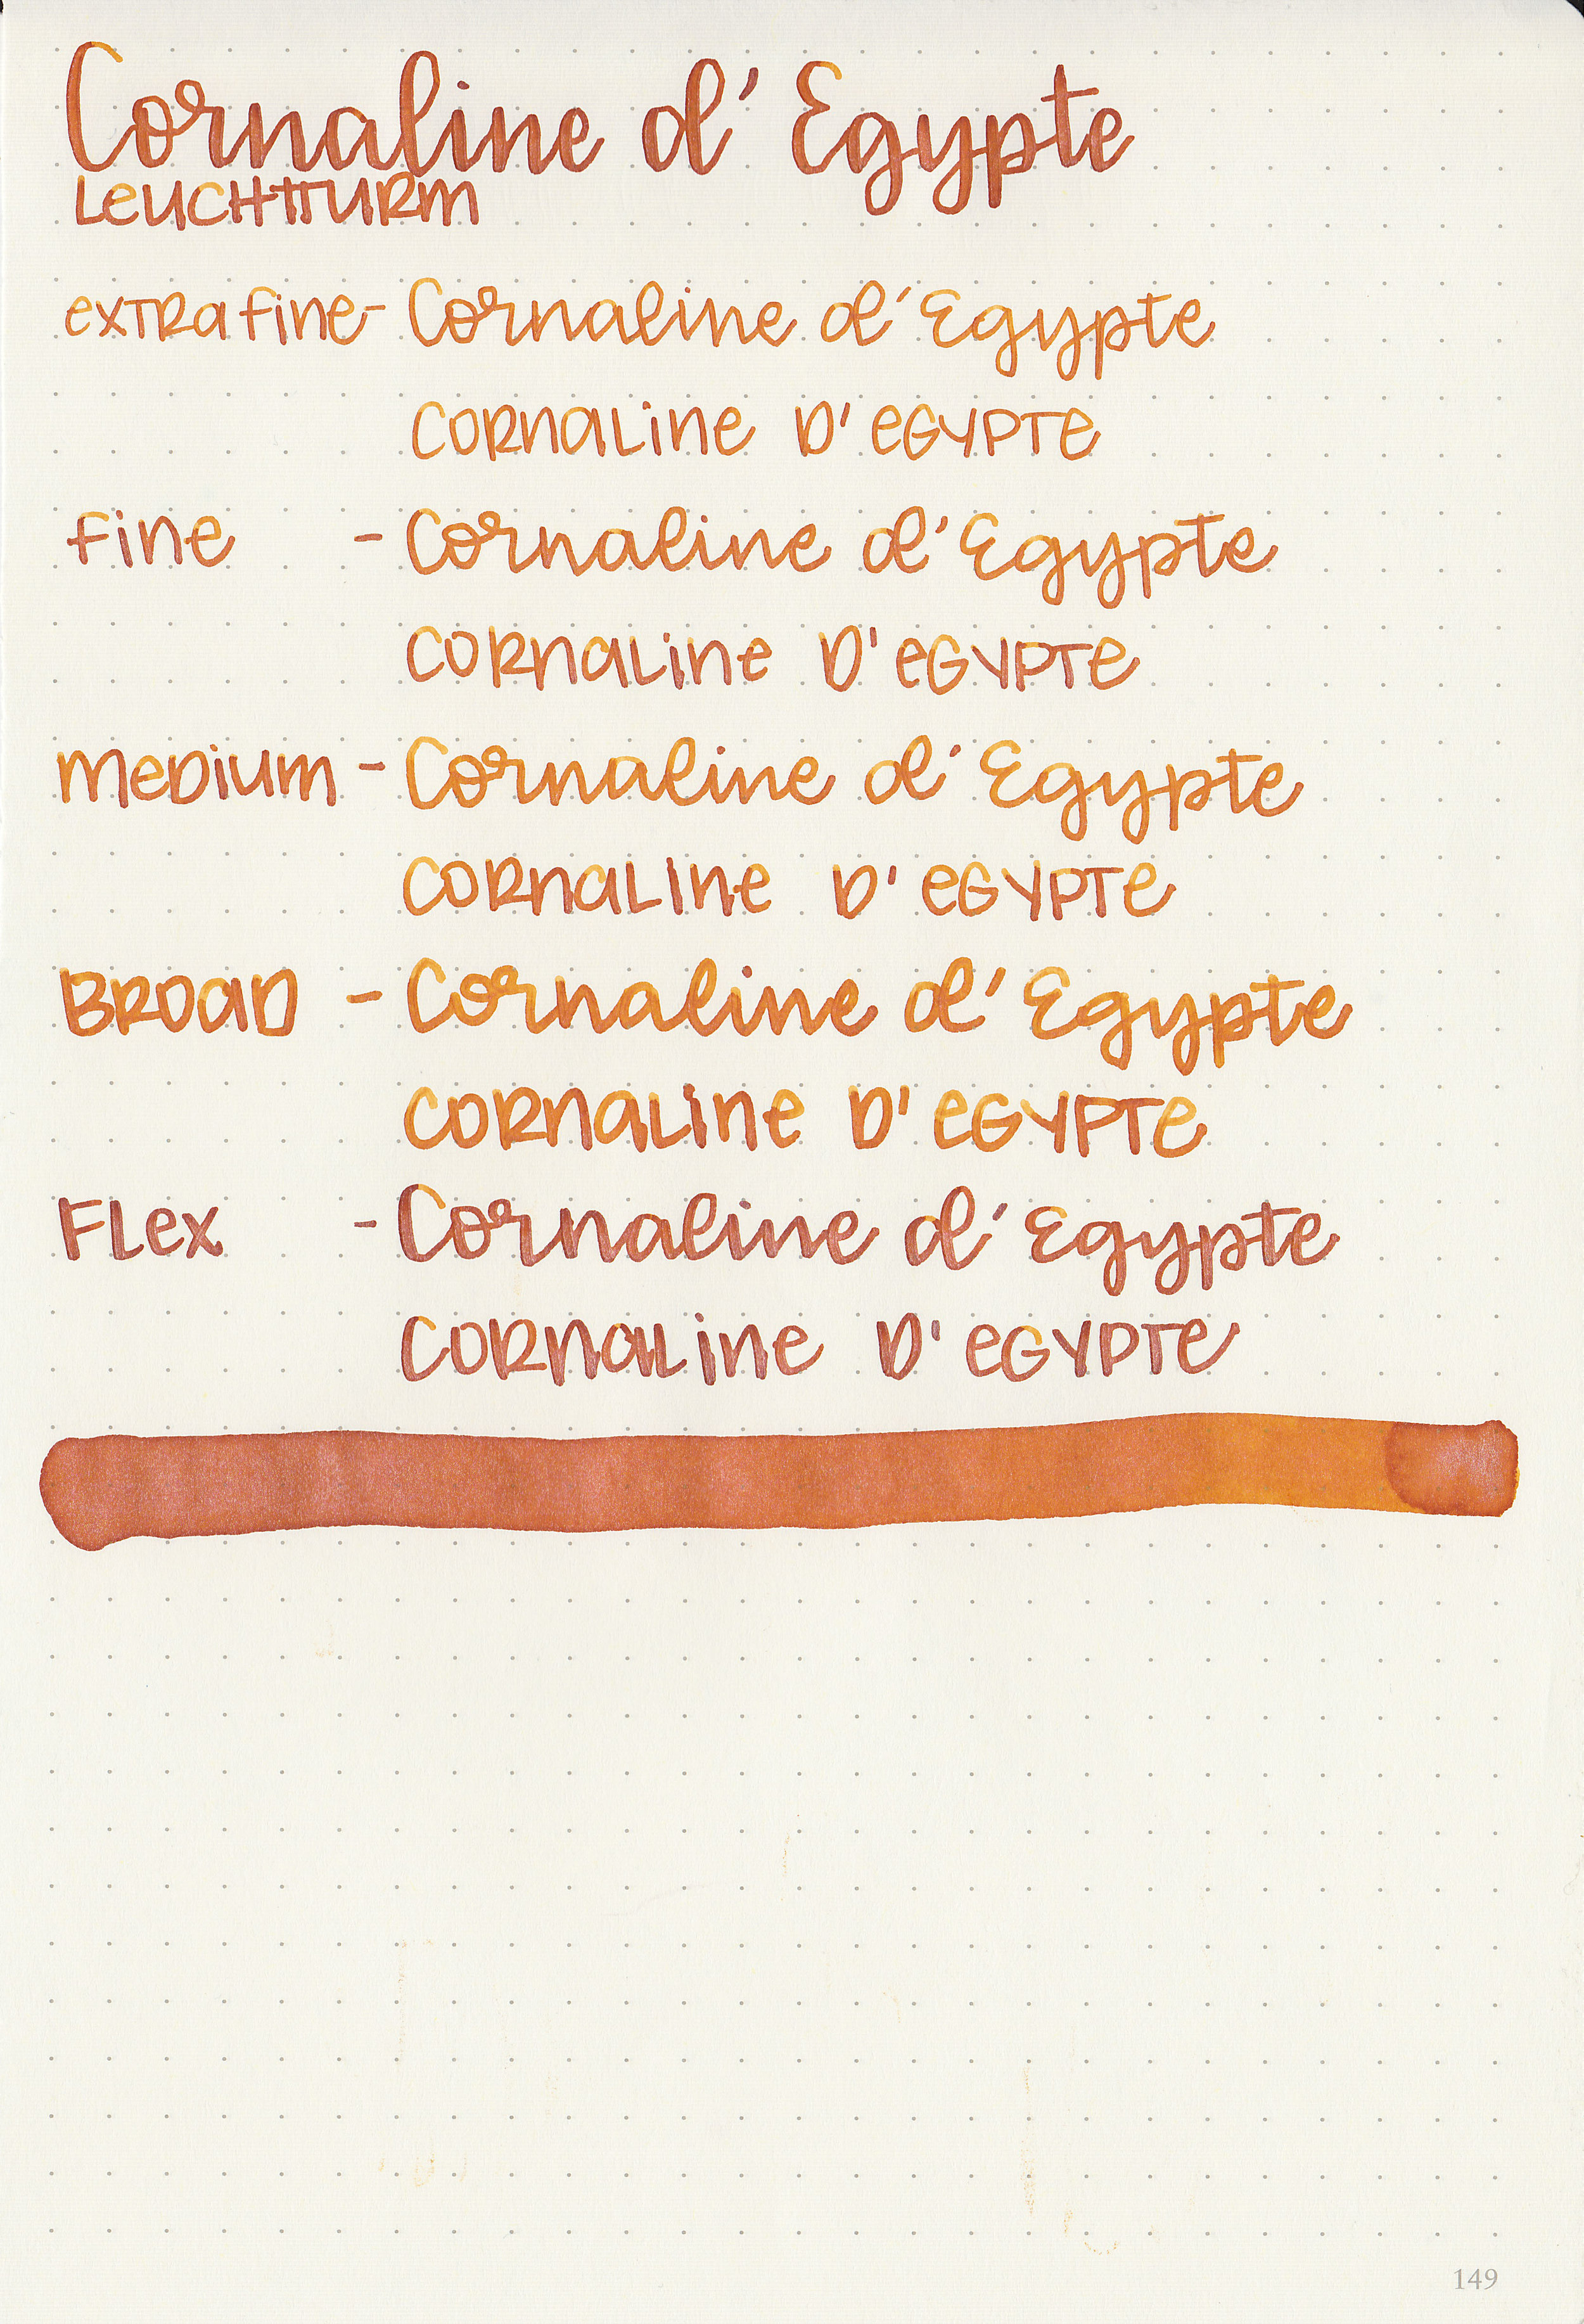 Cornaline d'Egypte
LEUCHTTURM
extra fine - Cornaline d'Egypte
CORNALINE D'EGYPTE
fine - Cornaline d'Egypte
CORNALINE D'EGYPTE
MEDIUM - Cornaline d'Egypte
CORNALINE D'EGYPTE
BROAD - Cornaline d'Egypte
CORNALINE D'EGYPTE
FLEX - Cornaline d'Egypte
CORNALINE D'EGYPTE
149